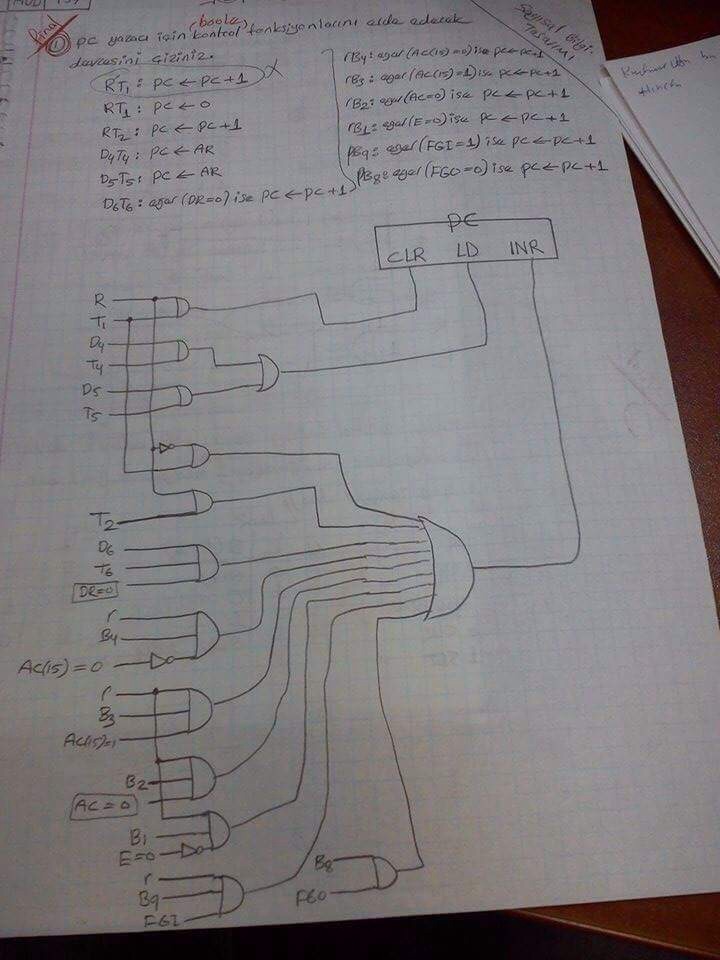 Final
(boole)
① PC yazacı için kontrol fonksiyonlarını elde edecek
devresini çiziniz.
RT₁: PC ← PC+1 X
RT₁: PC ← 0
RT₂: PC ← PC+1
D₄T₄: PC ← AR
D₅T₅: PC ← AR
D₆T₆: eğer (DR=0) ise PC ← PC+1
rB₄: eğer (AC(15)=0) ise PC ← PC+1
rB₃: eğer (AC(15)=1) ise PC ← PC+1
rB₂: eğer (AC=0) ise PC ← PC+1
rB₁: eğer (E=0) ise PC ← PC+1
pB₉: eğer (FGI=1) ise PC ← PC+1
pB₈: eğer (FGO=0) ise PC ← PC+1
Sayısal Bilgi.
Tasarımı
PC
CLR LD INR
R
T₁
D₄
T₄
D₅
T₅
T₂
D₆
T₆
DR=0
r
B₄
AC(15)=0
r
B₃
AC(15)=1
B₂
AC=0
B₁
E=0
r
B₉
FGI
B₈
FGO